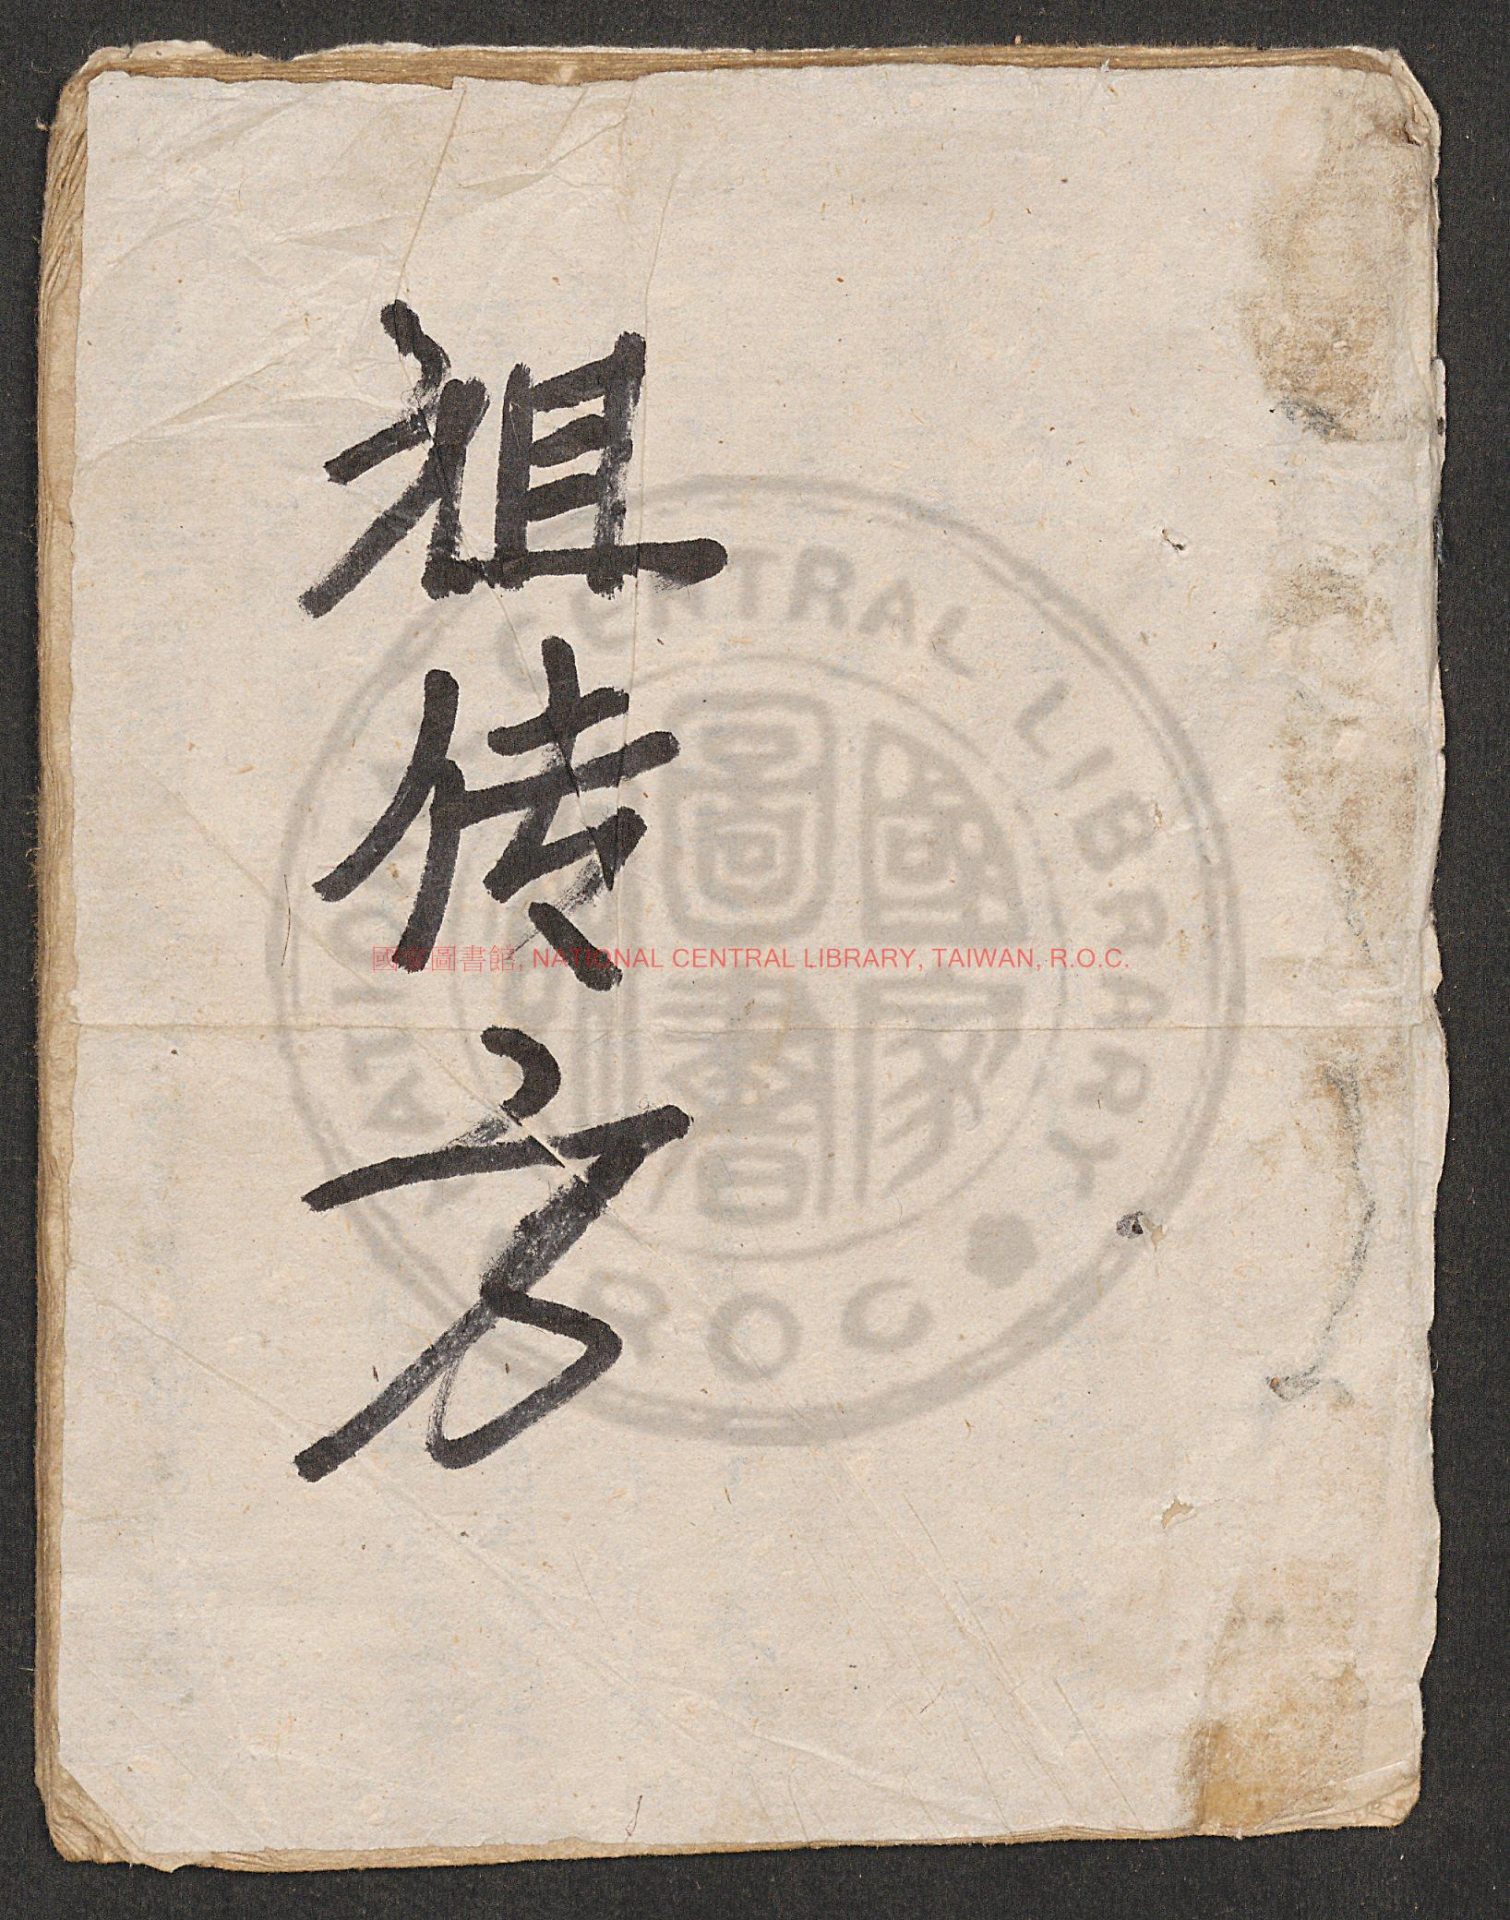 祖传方
國家圖書館, NATIONAL CENTRAL LIBRARY, TAIWAN, R.O.C.
NATIONAL CENTRAL LIBRARY
R O C
國家圖書